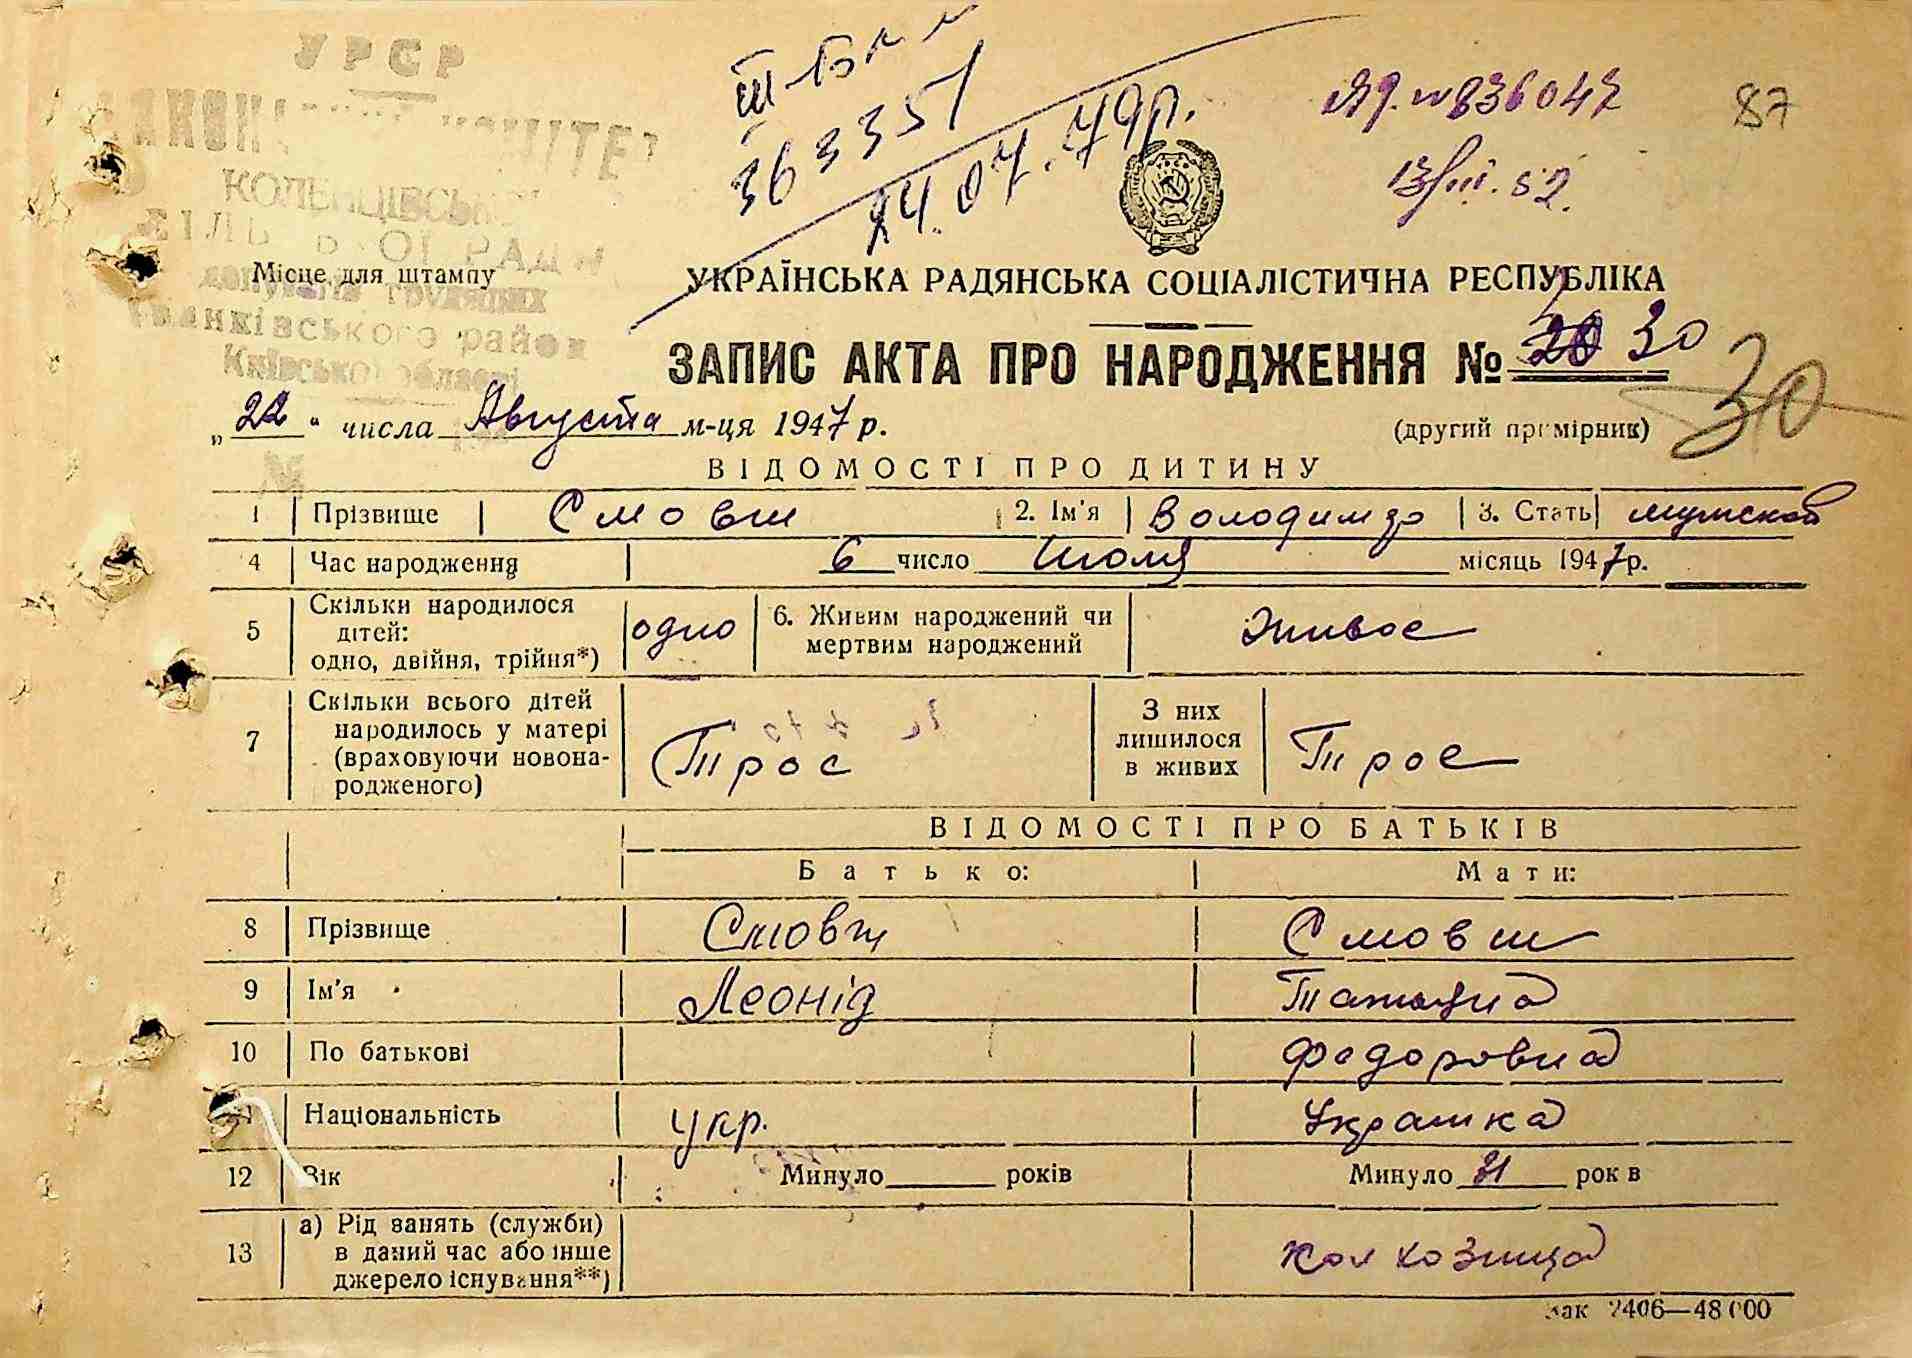 УРСР
КОЛЕНЦІВСЬКОЇ
СІЛЬСЬКОЇ РАДИ
депутатів трудящих
Іванківського району
Київської області
Місце для штампу
363351
24.07.79р.
836047
87
УКРАЇНСЬКА РАДЯНСЬКА СОЦІАЛІСТИЧНА РЕСПУБЛІКА
ЗАПИС АКТА ПРО НАРОДЖЕННЯ № 30
30
„22“ числа Августа м-ця 1947 р.
(другий примірник)
ВІДОМОСТІ ПРО ДИТИНУ
1 Прізвище Смовш 2. Ім'я Володимир 3. Стать мужской
4 Час народження 6 число Июля місяць 1947 р.
5 Скільки народилося дітей: одно, двійня, трійня*) одно 6. Живим народжений чи мертвим народжений Живое
7 Скільки всього дітей народилось у матері (враховуючи новонародженого) Трое З них лишилося в живих Трое
ВІДОМОСТІ ПРО БАТЬКІВ
Батько: Мати:
8 Прізвище Смовж Смовш
9 Ім'я Леонід Татьяна
10 По батькові Федоровна
11 Національність укр. Украинка
12 Вік Минуло років Минуло рок в
13 а) Рід занять (служби) в даний час або інше джерело існування**) колхозница
Зак 2406—48000